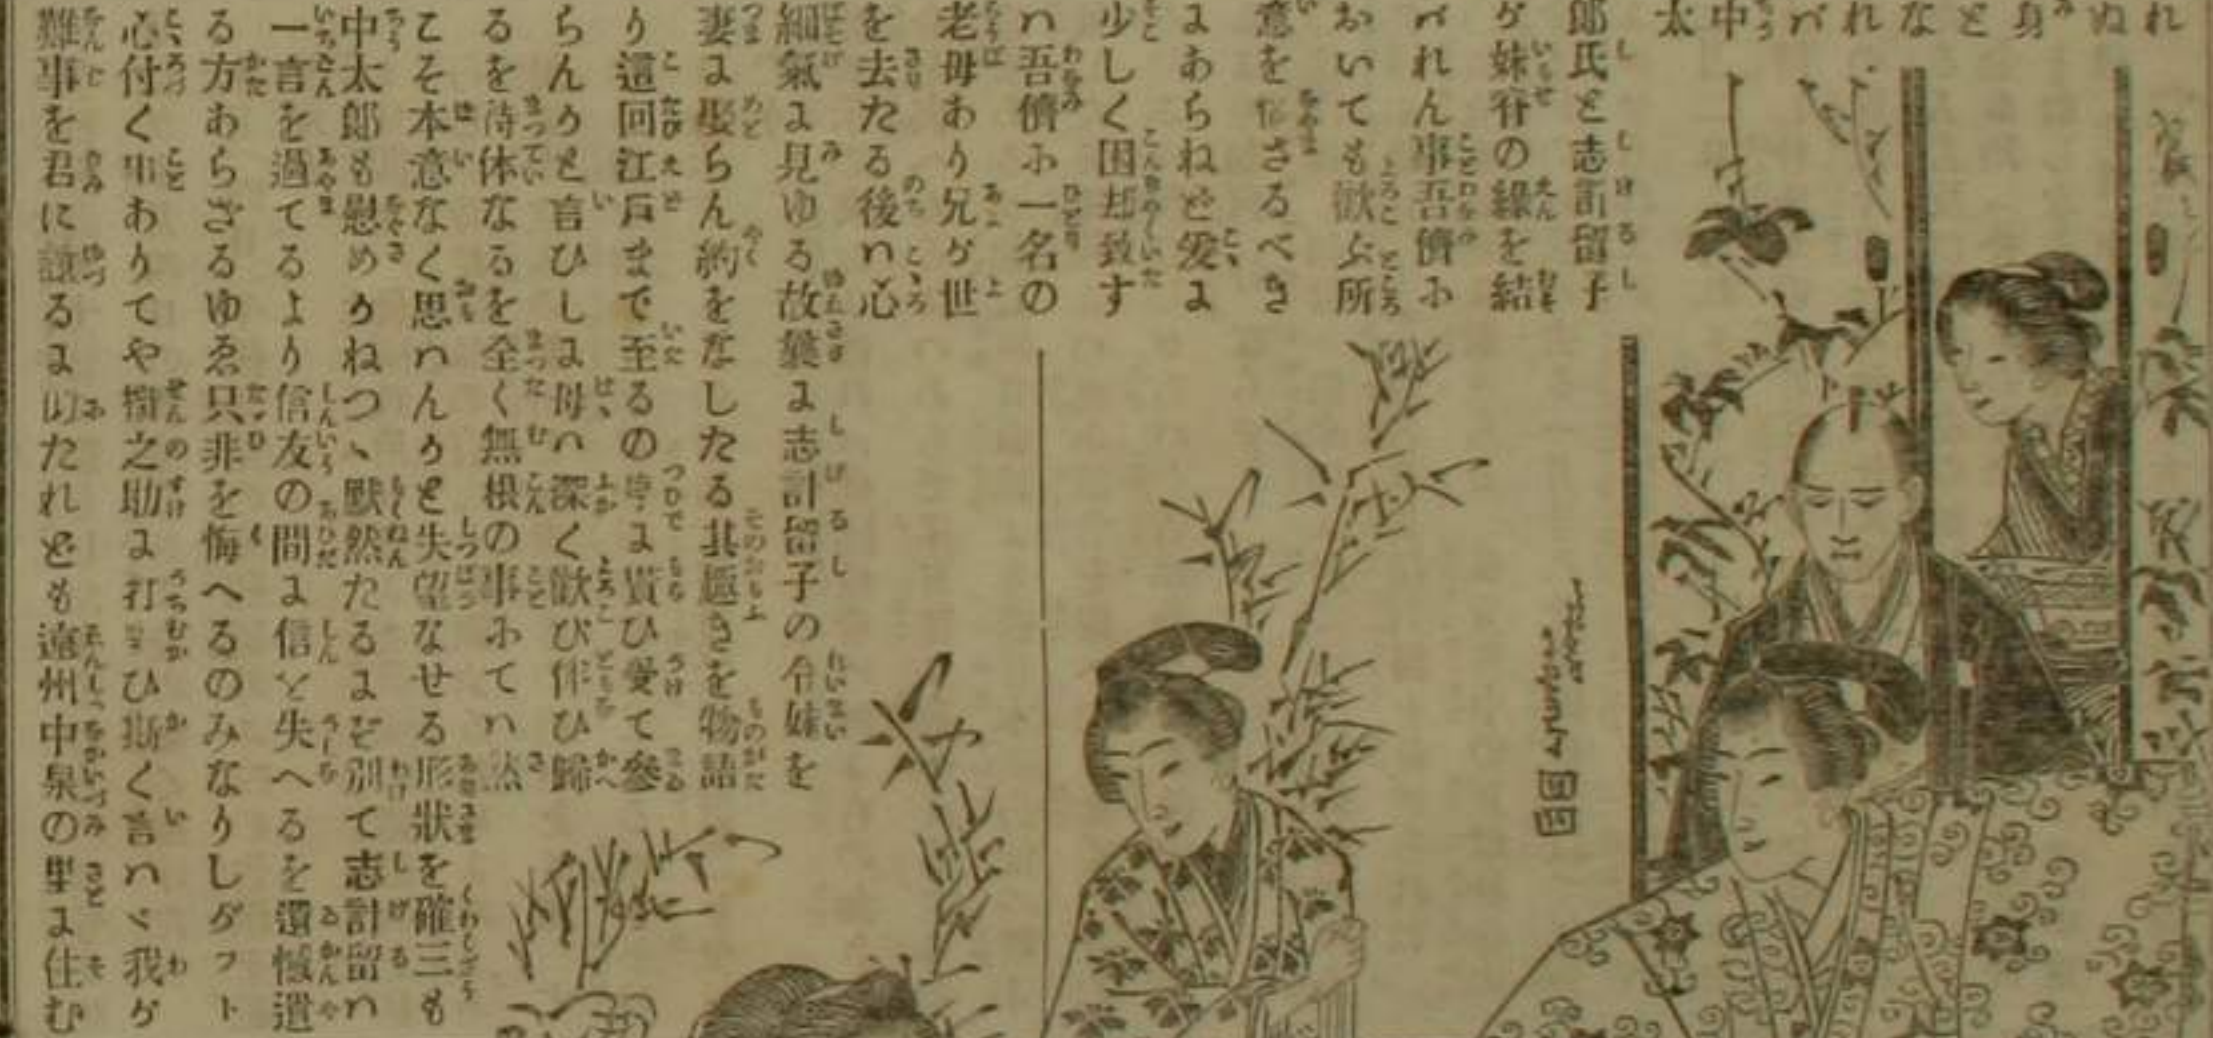 れぬ身となれバ中太
郎氏と志計留子
が妹脊の縁を結
バれん事吾儕に
おいても歓ぶ所
意を悩さるべき
にあらねど爰に
少しく困却致す
ハ吾儕に一名の
老母あり兄が世
を去たる後ハ心
細氣に見ゆる故曩に志計留子の令妹を
妻に娶らん約をなしたる其趣きを物語
り這回江戸まで至るの序に貰ひ受て參
らんかと言ひしに母ハ深く歓び伴ひ歸
るを待体なるを全く無根の事にてハ然
こそ本意なく思ハんかと失望なせる形狀を確三も
中太郎も慰めかねつゝ默然たるにぞ別て志計留ハ
一言を過てるより信友の間に信を失へるを遺憾遣
る方あらざるゆゑ只非を悔へるのみなりしがフト
心付く事ありてや之助に打對ひ斯く言ハゞ我が
難事を君に讓るに似たれども遠州中泉の里に住む